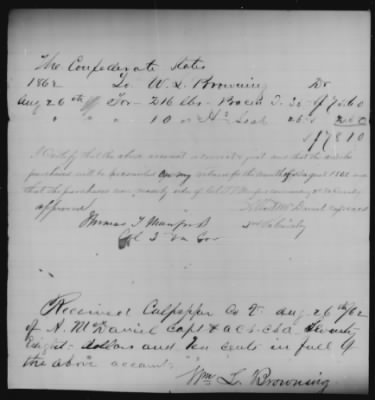 The Confederate States
1862 To W. L. Browning Dr
Aug 26th For 216 lbs Bacon @ 35 $75.60
" " " 10 " Hd Lard 25 2.50
$78.10
I certify that the above account is correct & just and that the articles
purchased will be accounted for on my return for the month of August 1862 and
that the purchases were made by order of Col. T. T. Munford commanding 2d Va Cavalry
approved
Thomas T. Munford
Col 2d Va Cav
Received Culpepper Co Va Aug 26th /62
of A. McDaniel Capt & acs C.S.A. Seventy
Eight dollars and ten cents in full of
the above account.
Wm L. Browning